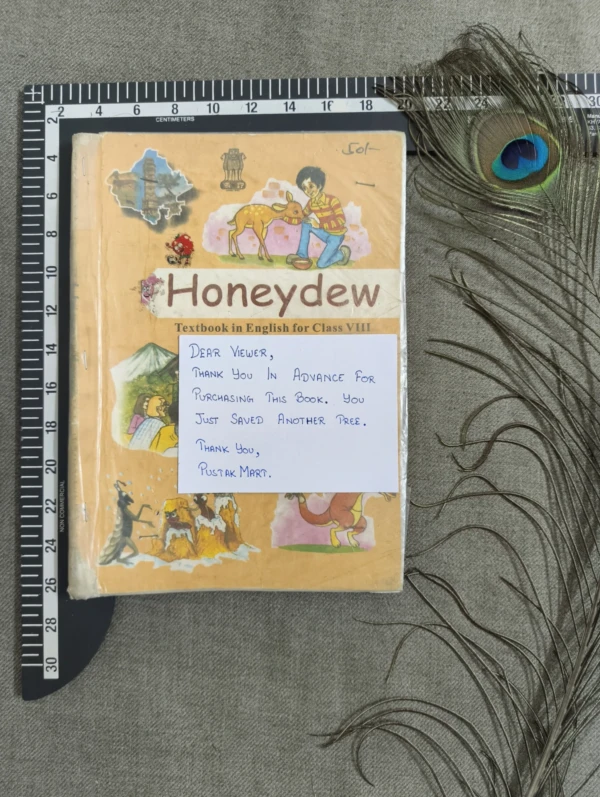 2 4 6 8 10 12 14 16 18 20 22 24 30
CENTIMETERS
2
4
6
8
10
12
14
16
18
20
22
24
26
28
30
NON COMMERCIAL
50/-
Honeydew
Textbook in English for Class VIII
DEAR VIEWER,
THANK YOU IN ADVANCE FOR
PURCHASING THIS BOOK. YOU
JUST SAVED ANOTHER TREE.
THANK YOU,
PUSTAK MART.